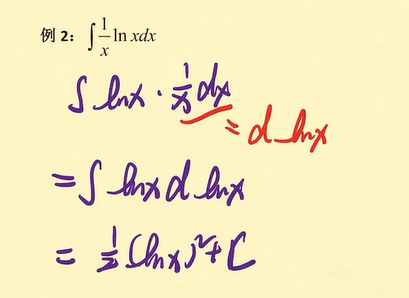 例 2：∫ 1/x ln xdx
∫ lnx · 1/x dx
= d lnx
= ∫ lnx d lnx
= 1/2 (lnx)² + C